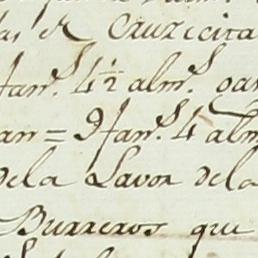 las R Cruzecita
fan.s 4½ alm.s
an = 9 fan.s 4 alm
dela Lavor dela
Burreros que